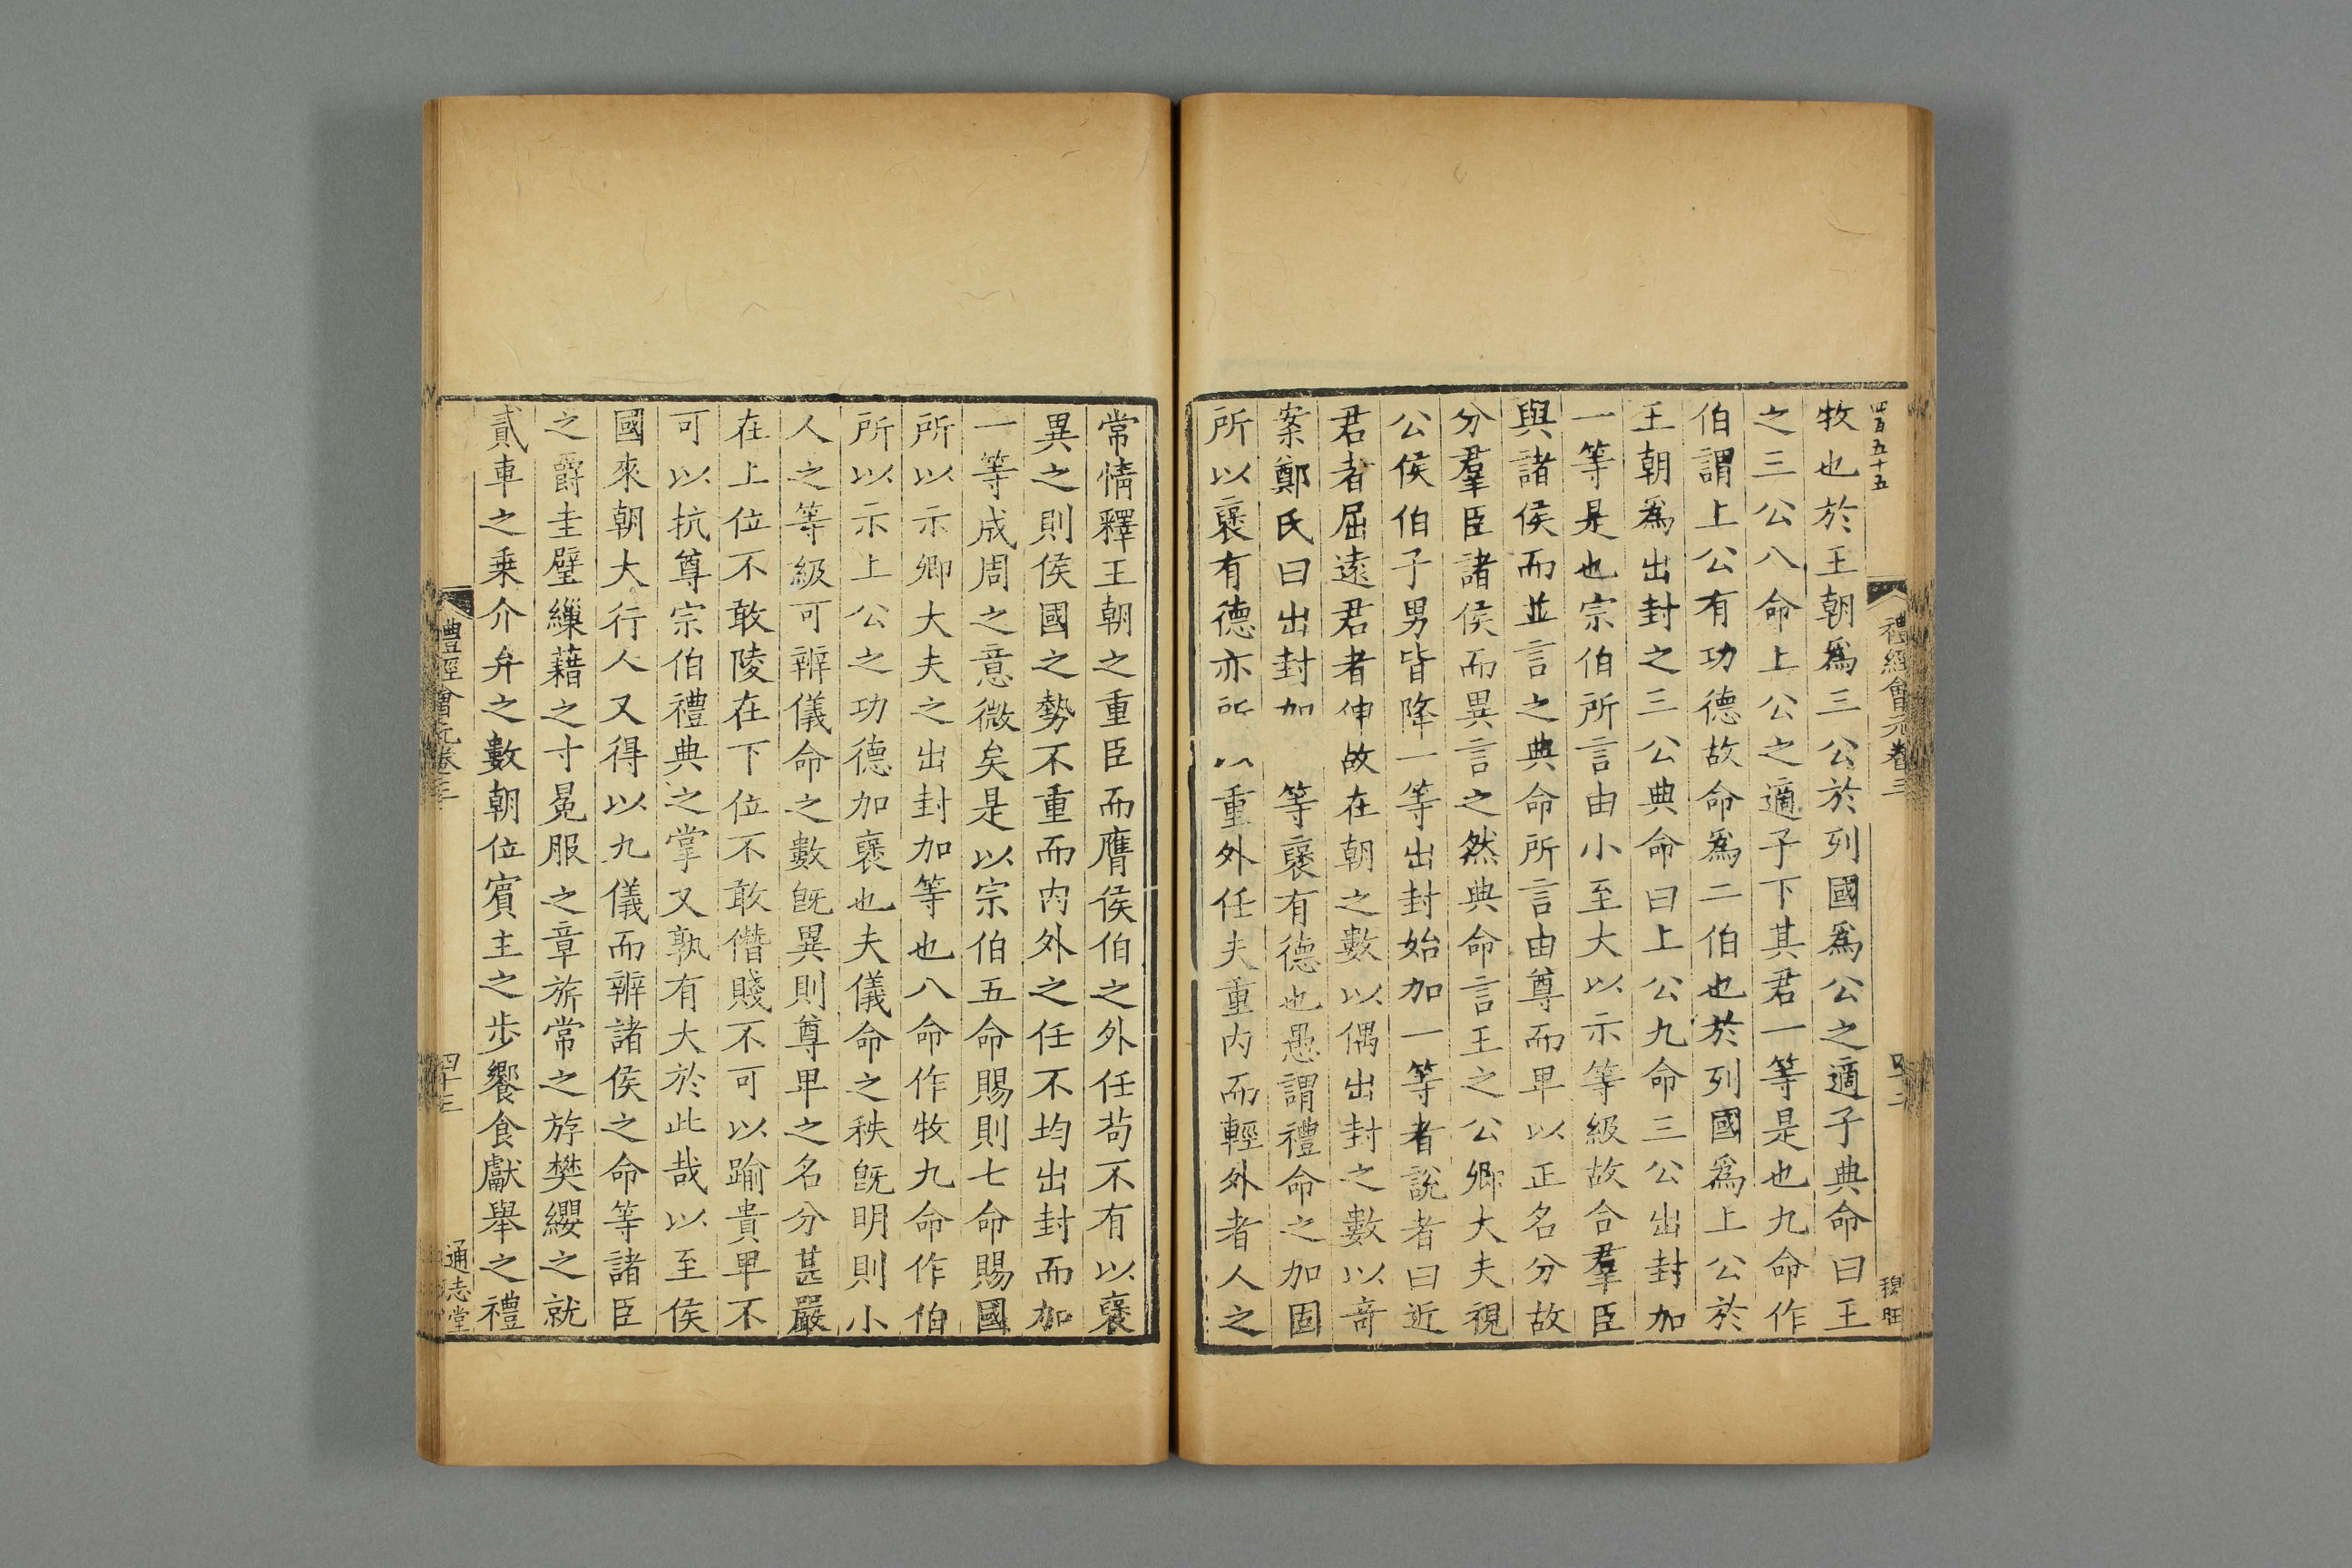 四百五十五
禮經會元卷三
牧也於王朝爲三公於列國爲公之適子典命曰王
之三公八命上公之適子下其君一等是也九命作
伯謂上公有功德故命爲二伯也於列國爲上公於
王朝爲出封之三公典命曰上公九命三公出封加
一等是也宗伯所言由小至大以示等級故合羣臣
與諸侯而並言之典命所言由尊而卑以正名分故
分羣臣諸侯而異言之然典命言王之公卿大夫視
公侯伯子男皆降一等出封始加一等者說者曰近
君者屈遠君者伸故在朝之數以偶出封之數以奇
案鄭氏曰出封加等襃有德也愚謂禮命之加固
所以襃有德亦所以重外任夫重内而輕外者人之
常情釋王朝之重臣而膺侯伯之外任茍不有以襃
異之則侯國之勢不重而内外之任不均出封而加
一等成周之意微矣是以宗伯五命賜則七命賜國
所以示卿大夫之出封加等也八命作牧九命作伯
所以示上公之功德加襃也夫儀命之秩旣明則小
人之等級可辨儀命之數旣異則尊卑之名分甚嚴
在上位不敢陵在下位不敢僭賤不可以踰貴卑不
可以抗尊宗伯禮典之掌又孰有大於此哉以至侯
國來朝大行人又得以九儀而辨諸侯之命等諸臣
之爵圭璧繅藉之寸冕服之章旂常之斿樊纓之就
貳車之乗介弁之數朝位賓主之步饗食獻舉之禮
禮經會元卷三
四十三
通志堂